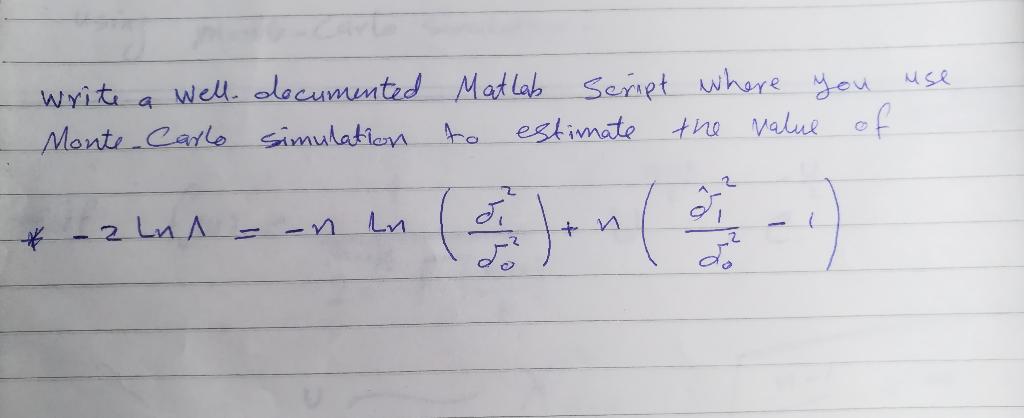 Write a well-documented Matlab Script where you use
Monte-Carlo simulation to estimate the value of
* -2 Ln Λ = -n Ln (σ̂₁² / σ₀²) + n (σ̂₁² / σ₀² - 1)